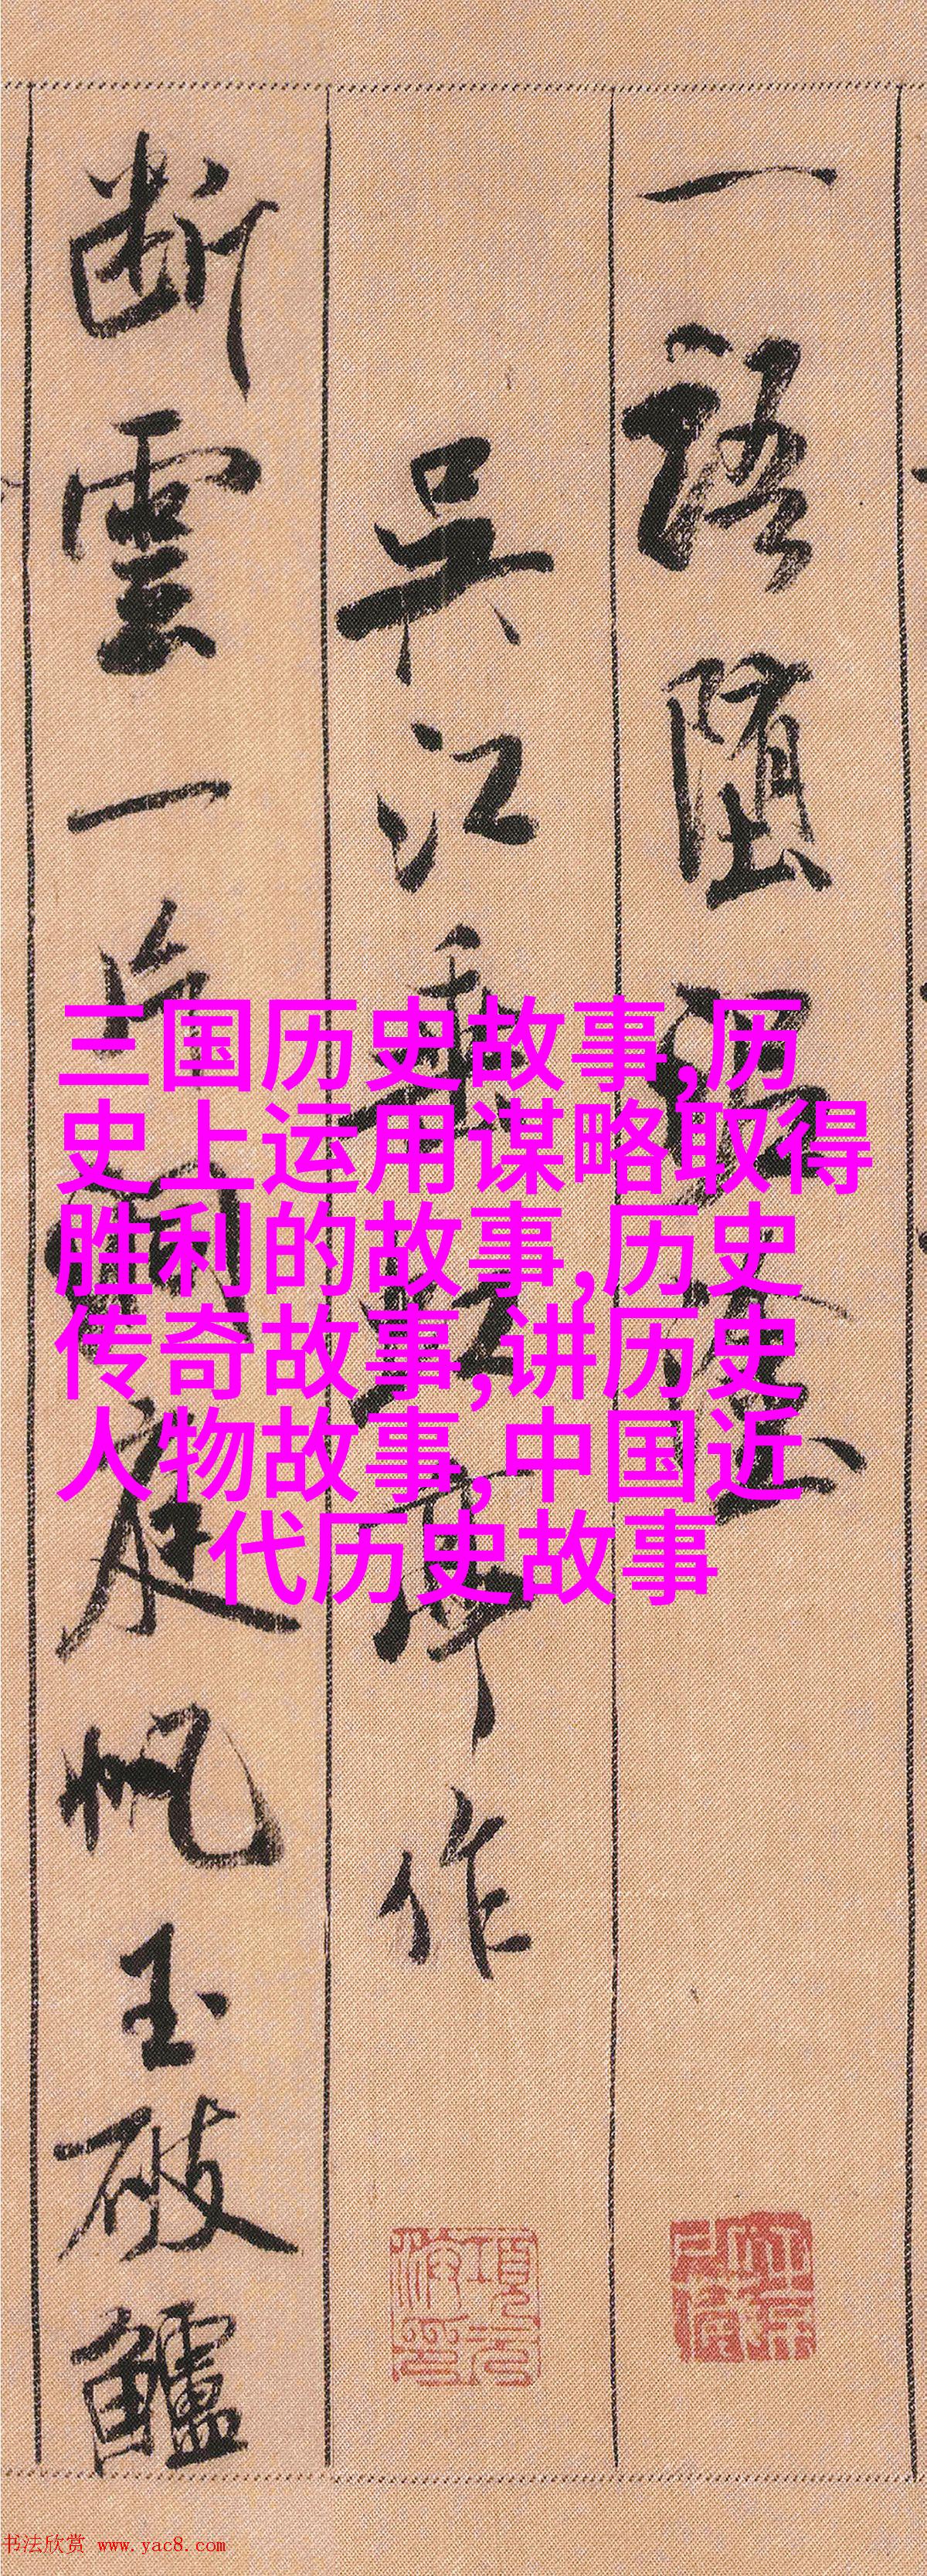 一語墮泥塗
吳江垂虹亭作
断雲一片洞庭帆玉破鱸
三国历史故事,历
史上运用谋略取得
胜利的故事,历史
传奇故事,讲历史
人物故事,中国近
代历史故事
书法欣赏 www.yac8.com